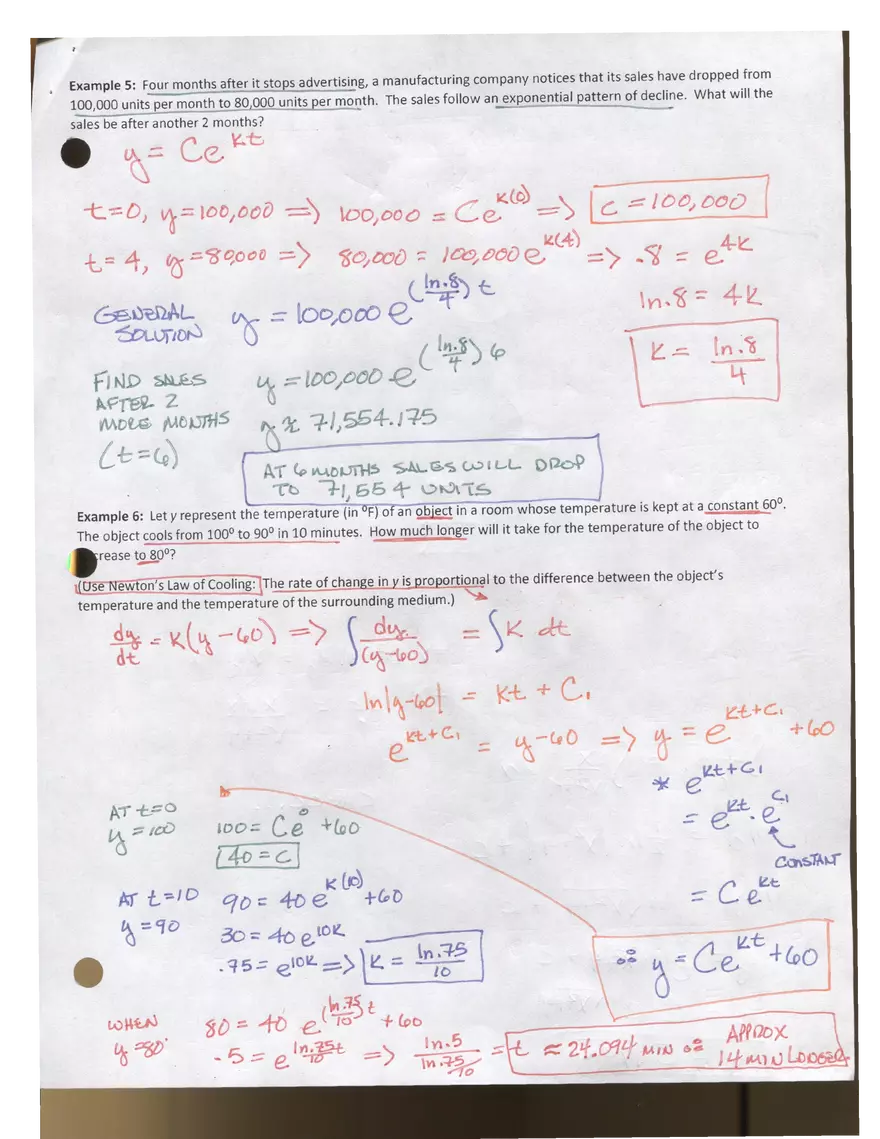 Example 5: Four months after it stops advertising, a manufacturing company notices that its sales have dropped from
100,000 units per month to 80,000 units per month. The sales follow an exponential pattern of decline. What will the
sales be after another 2 months?
y = Ce^kt
t=0, y=100,000 => 100,000 = Ce^k(0) => C = 100,000
t=4, y=80,000 => 80,000 = 100,000e^k(4) => .8 = e^4k
ln.8 = 4k
k = ln.8/4
GENERAL SOLUTION y = 100,000 e^(ln.8/4)t
FIND SALES
AFTER 2
MORE MONTHS
(t=6)
y = 100,000 e^(ln.8/4)6
y ≈ 71,554.175
AT 6 MONTHS SALES WILL DROP
TO 71,554 UNITS
Example 6: Let y represent the temperature (in ⁰F) of an object in a room whose temperature is kept at a constant 60⁰.
The object cools from 100⁰ to 90⁰ in 10 minutes. How much longer will it take for the temperature of the object to
rease to 80⁰?
(Use Newton's Law of Cooling: The rate of change in y is proportional to the difference between the object's
temperature and the temperature of the surrounding medium.)
dy/dt = k(y-60) => ∫ dy/(y-60) = ∫k dt
ln|y-60| = kt + C₁
e^kt+C₁ = y-60 => y = e^kt+C₁ +60
* e^kt+C₁
= e^kt · e^C₁
CONSTANT
= Ce^kt
∴ y = Ce^kt +60
AT t=0
y = 100
100 = Ce^0 +60
40 = C
AT t=10
y = 90
90 = 40e^k(10) +60
30 = 40e^10k
.75 = e^10k => k = ln.75/10
WHEN
y=80
80 = 40 e^(ln.75/10)t +60
.5 = e^ln.75/10 t => ln.5/(ln.75/10) = t ≈ 24.094 MIN ∴ APPROX
14 MIN LONGER